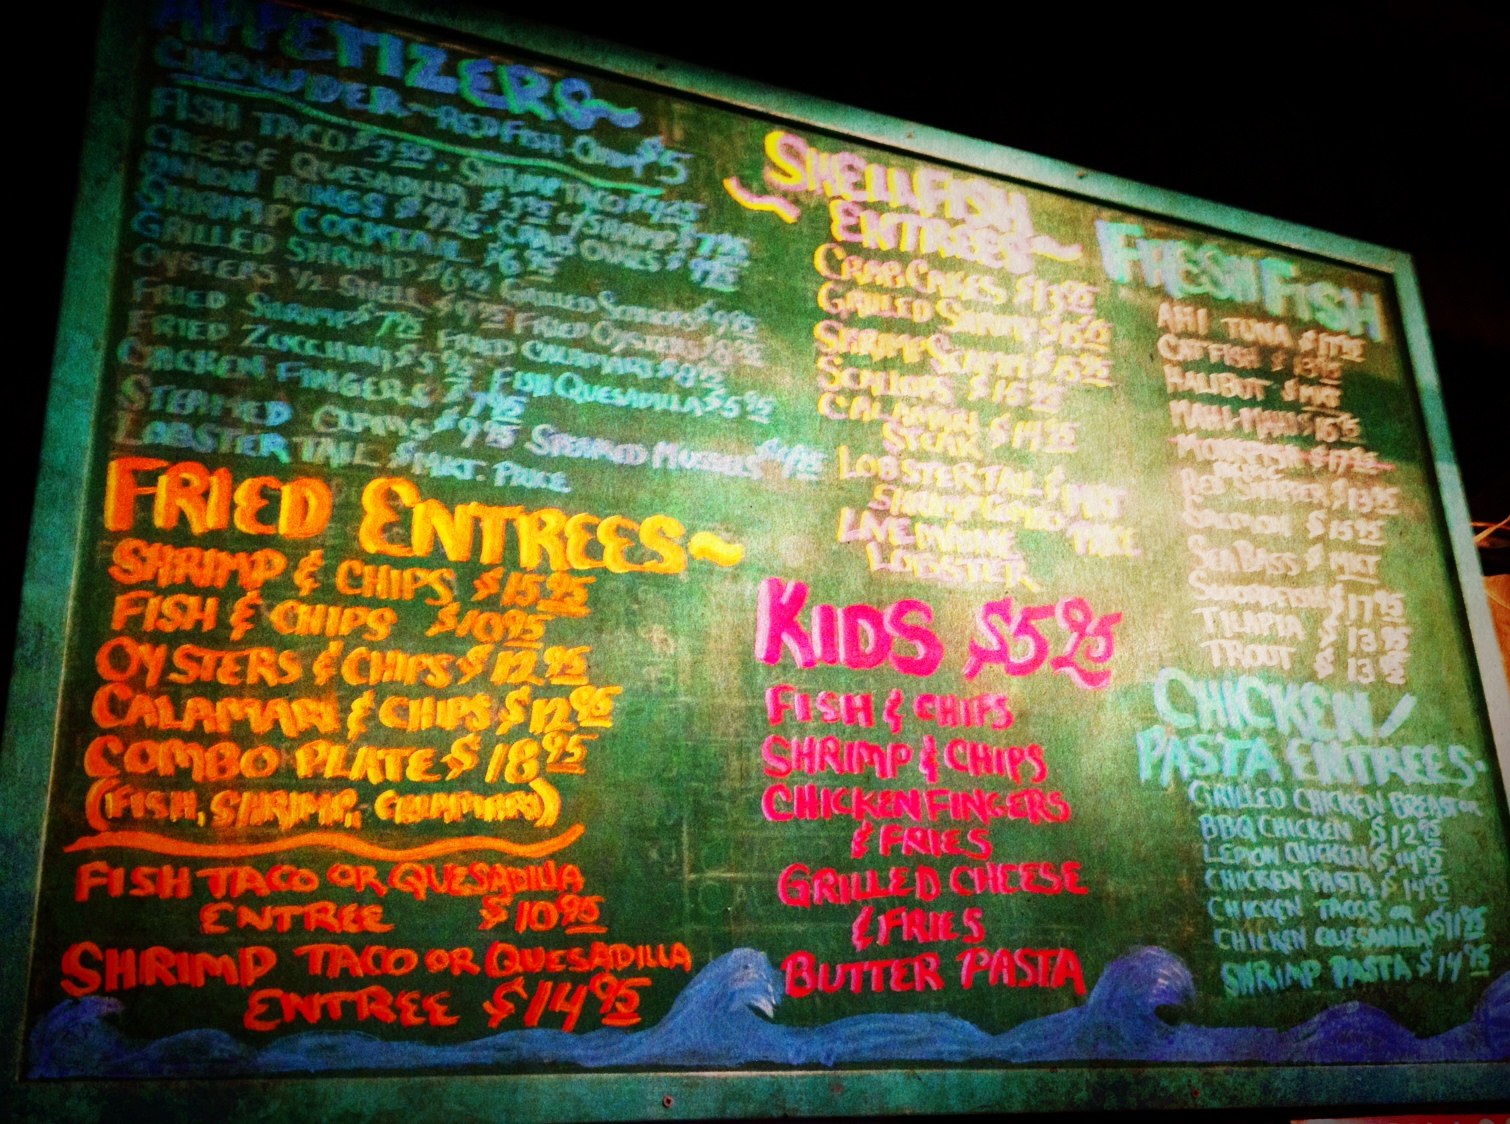 APPETIZERS~
CHOWDER~RED FISH CORN $5
FISH TACO $3.50 · SHRIMP TACO $4.25
CHEESE QUESADILLA $3.95 w/ SHRIMP $7.95
ONION RINGS $4.95 · CRAB CAKES $9.95
SHRIMP COCKTAIL $6.95
GRILLED SHRIMP $6.95 GRILLED SCALLOPS $9.95
OYSTERS 1/2 SHELL $9.95 FRIED OYSTERS
FRIED SHRIMP $7.95 FRIED CALAMARI $8.95
FRIED ZUCCHINI $5.95
CHICKEN FINGERS $7.95 FISH QUESADILLA $5.95
STEAMED CLAMS $9.95 STEAMED MUSSELS $9.95
LOBSTER TAIL $MKT. PRICE
FRIED ENTREES~
SHRIMP & CHIPS $15.95
FISH & CHIPS $10.95
OYSTERS & CHIPS $12.95
CALAMARI & CHIPS $12.95
COMBO PLATE $18.95
(FISH, SHRIMP, CALAMARI)
FISH TACO OR QUESADILLA
ENTREE $10.95
SHRIMP TACO OR QUESADILLA
ENTREE $14.95
~SHELLFISH
ENTREES~
CRAB CAKES $13.95
GRILLED SHRIMP $15.95
SHRIMP SCAMPI $15.95
SCALLOPS $15.95
CALAMARI
STEAK $14.95
LOBSTER TAIL $MKT
SHRIMP COMBO PRICE
LIVE MAINE
LOBSTER
KIDS $5.95
FISH & CHIPS
SHRIMP & CHIPS
CHICKEN FINGERS
& FRIES
GRILLED CHEESE
& FRIES
BUTTER PASTA
FRESH FISH
AHI TUNA $17.95
CATFISH $13.95
HALIBUT $MKT
MAHI-MAHI $15.95
MONKFISH $17.95
RED SNAPPER $13.95
SALMON $15.95
SEA BASS $MKT
SWORDFISH $17.95
TILAPIA $13.95
TROUT $13.95
CHICKEN/
PASTA ENTREES~
GRILLED CHICKEN BREAST OR
BBQ CHICKEN $12.95
LEMON CHICKEN $14.95
CHICKEN PASTA $14.95
CHICKEN TACOS OR
CHICKEN QUESADILLA $11.95
SHRIMP PASTA $14.95